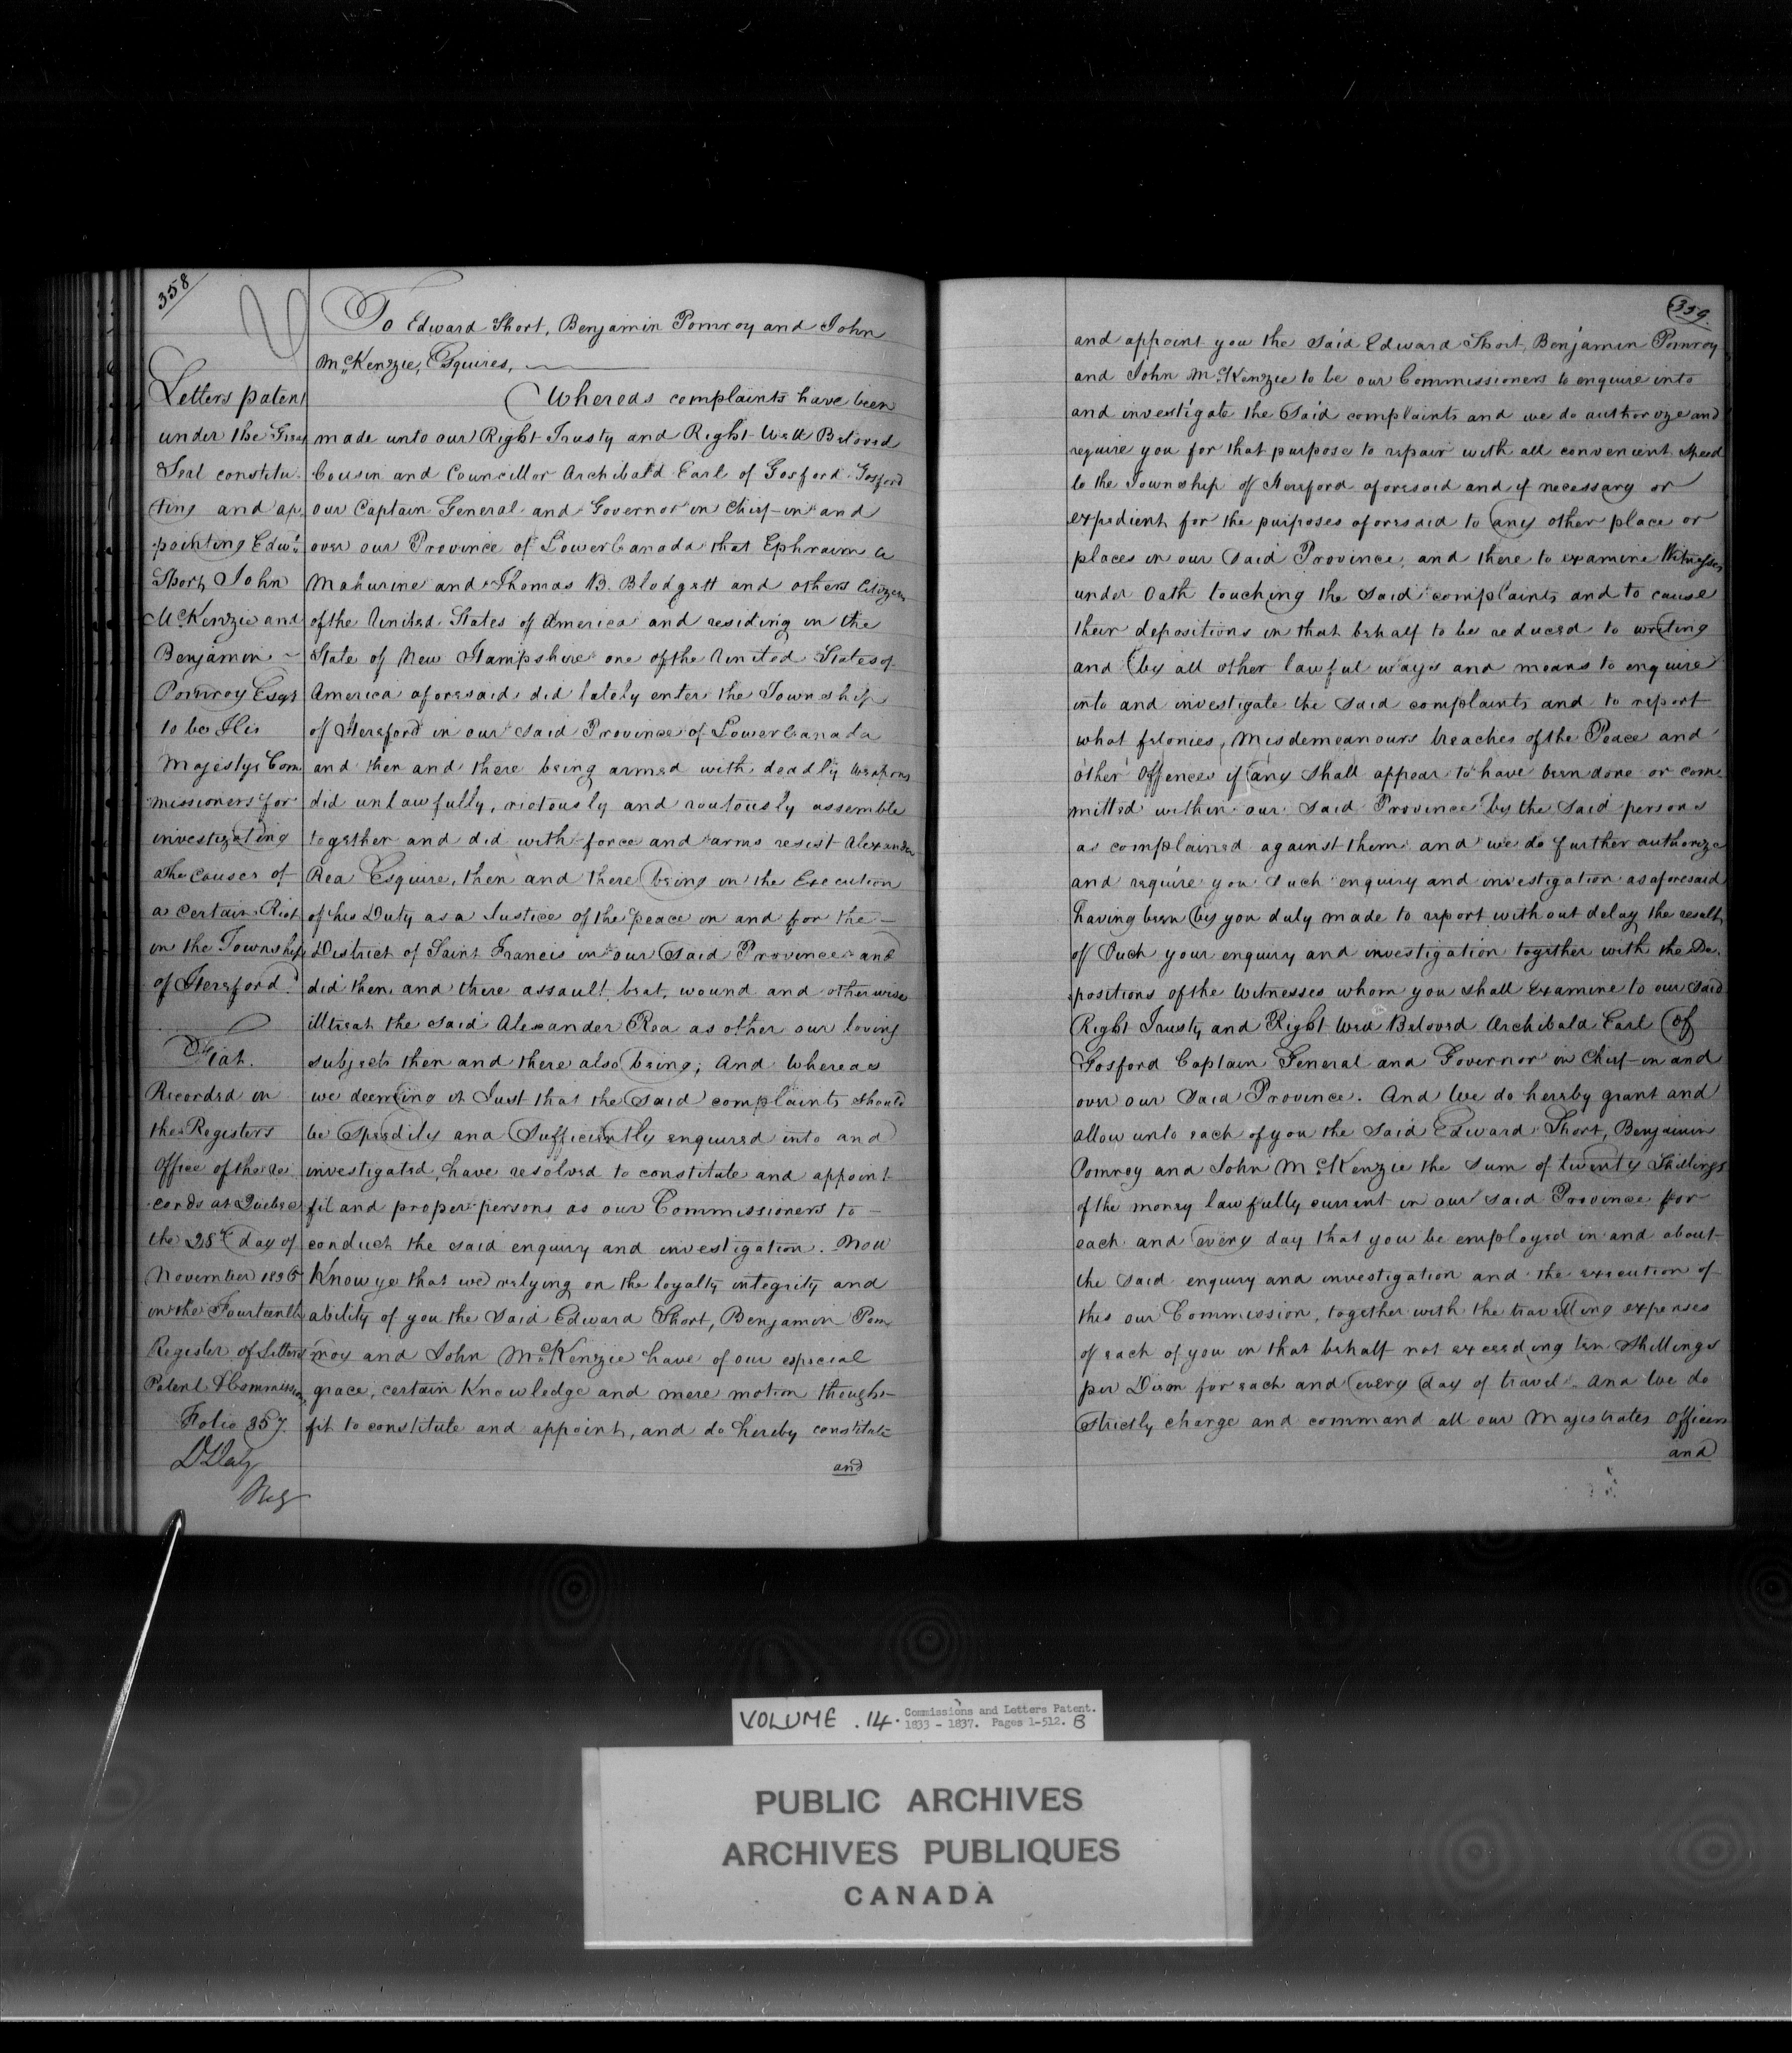 358
To Edward Short, Benjamin Pomroy and John
McKenzie, Esquires,
Whereas complaints have been
made unto our Right Trusty and Right Well Beloved
Cousin and Councillor Archibald Earl of Gosford Gosford
our Captain General and Governor in Chief in and
over our Province of Lower Canada that Ephraim C
Mahurine and Thomas B. Blodgett and others Citizens
of the United States of America and residing in the
State of New Hampshire one of the United States of
America aforesaid did lately enter the Township
of Hereford in our said Province of Lower Canada
and then and there being armed with deadly weapons
did unlawfully, riotously and routously assemble
together and did with force and arms resist Alexander
Rea Esquire, then and there being in the Execution
of his Duty as a Justice of the peace in and for the
District of Saint Francis in our Said Province and
did then and there assault beat, wound and otherwise
illtreat the said Alexander Rea as other our loving
subjects then and there also being; And Whereas
we deeming it Just that the Said complaints should
be Speedily and Sufficiently enquired into and
investigated, have resolved to constitute and appoint
fit and proper persons as our Commissioners to
conduct the said enquiry and investigation. Now
Know ye that we relying on the loyalty integrity and
ability of you the Said Edward Short, Benjamin Pom
roy and John McKenzie have of our especial
grace, certain Knowledge and mere motion thought
fit to constitute and appoint, and do hereby constitute
and
Letters patent
under the Great
Seal constitu
ting and ap
pointing Edwd
Short, John
McKenzie and
Benjamin
Pomroy Esqrs
to be His
Majestys Com
missioners for
investigating
the causes of
a certain Riot
in the Township
of Hereford.
Fiat.
Recorded in
the Registers
Office of the Re
cords at Quebec
the 28th day of
November 1836
in the Fourteenth
Register of Letters
Patent & Commissions
Folio 357.
D Daly
Reg
359.
and appoint you the said Edward Short, Benjamin Pomroy
and John McKenzie to be our Commissioners to enquire into
and investigate the Said complaints and we do authorize and
require you for that purpose to repair with all convenient Speed
to the Township of Hereford aforesaid and if necessary or
expedient for the purposes aforesaid to any other place or
places in our said Province, and there to examine Witnesses
under Oath touching the said complaints and to cause
their depositions in that behalf to be reduced to writing
and by all other lawful ways and means to enquire
into and investigate the said complaints and to report
what felonies, Misdemeanours breaches of the Peace and
other Offences if any Shall appear to have been done or com
mitted within our said Province by the said persons
as complained against them and we do further authorize
and require you Such enquiry and investigation as aforesaid
having been by you duly made to report without delay the result
of Such your enquiry and investigation together with the De
positions of the Witnesses whom you shall Examine to our Said
Right Trusty and Right Well Beloved Archibald Earl of
Gosford Captain General and Governor in Chief in and
over our Said Province. And We do hereby grant and
allow unto each of you the Said Edward Short, Benjamin
Pomroy and John McKenzie the Sum of twenty Shillings
of the money lawfully current in our said Province for
each and every day that you be employed in and about
the said enquiry and investigation and the execution of
this our Commission, together with the travelling expenses
of each of you in that behalf not exceeding ten Shillings
per Diem for each and every day of travel. And We do
Strictly charge and command all our Majestrates Officers
and
VOLUME .14. Commissions and Letters Patent.
1833 - 1837. Pages 1-512. B
PUBLIC ARCHIVES
ARCHIVES PUBLIQUES
CANADA